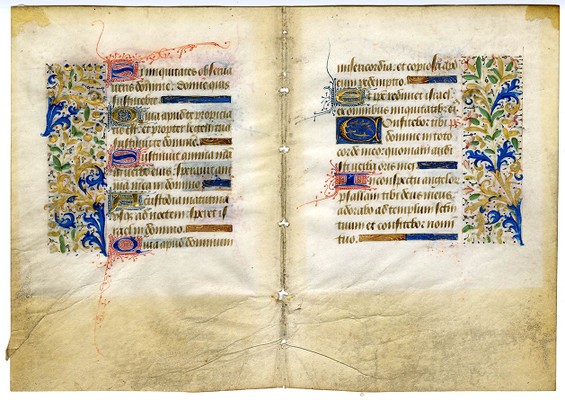 Si iniquitates observa
veris domine: domine quis
sustinebit
Quia apud te propicia
tio est: et propter legem tuā
sustinui te domine
Sustinuit anima mea
in verbo eius: speravit ani
ma mea in domino
A custodia matutina
usque ad noctem: speret is
rael in domino.
Quia apud dominum
misericordia: et copiosa apd
eum redemptio.
Et ipse redimet israel
ex omnibus iniquitatibꝰ ei
Confitebor tibi
domine in toto
corde meo: quoniam audi
sti verba oris mei
In conspectu angelor
psallam tibi deus meus:
adorabo ad templum
tuum et confitebor nomi
tuo.